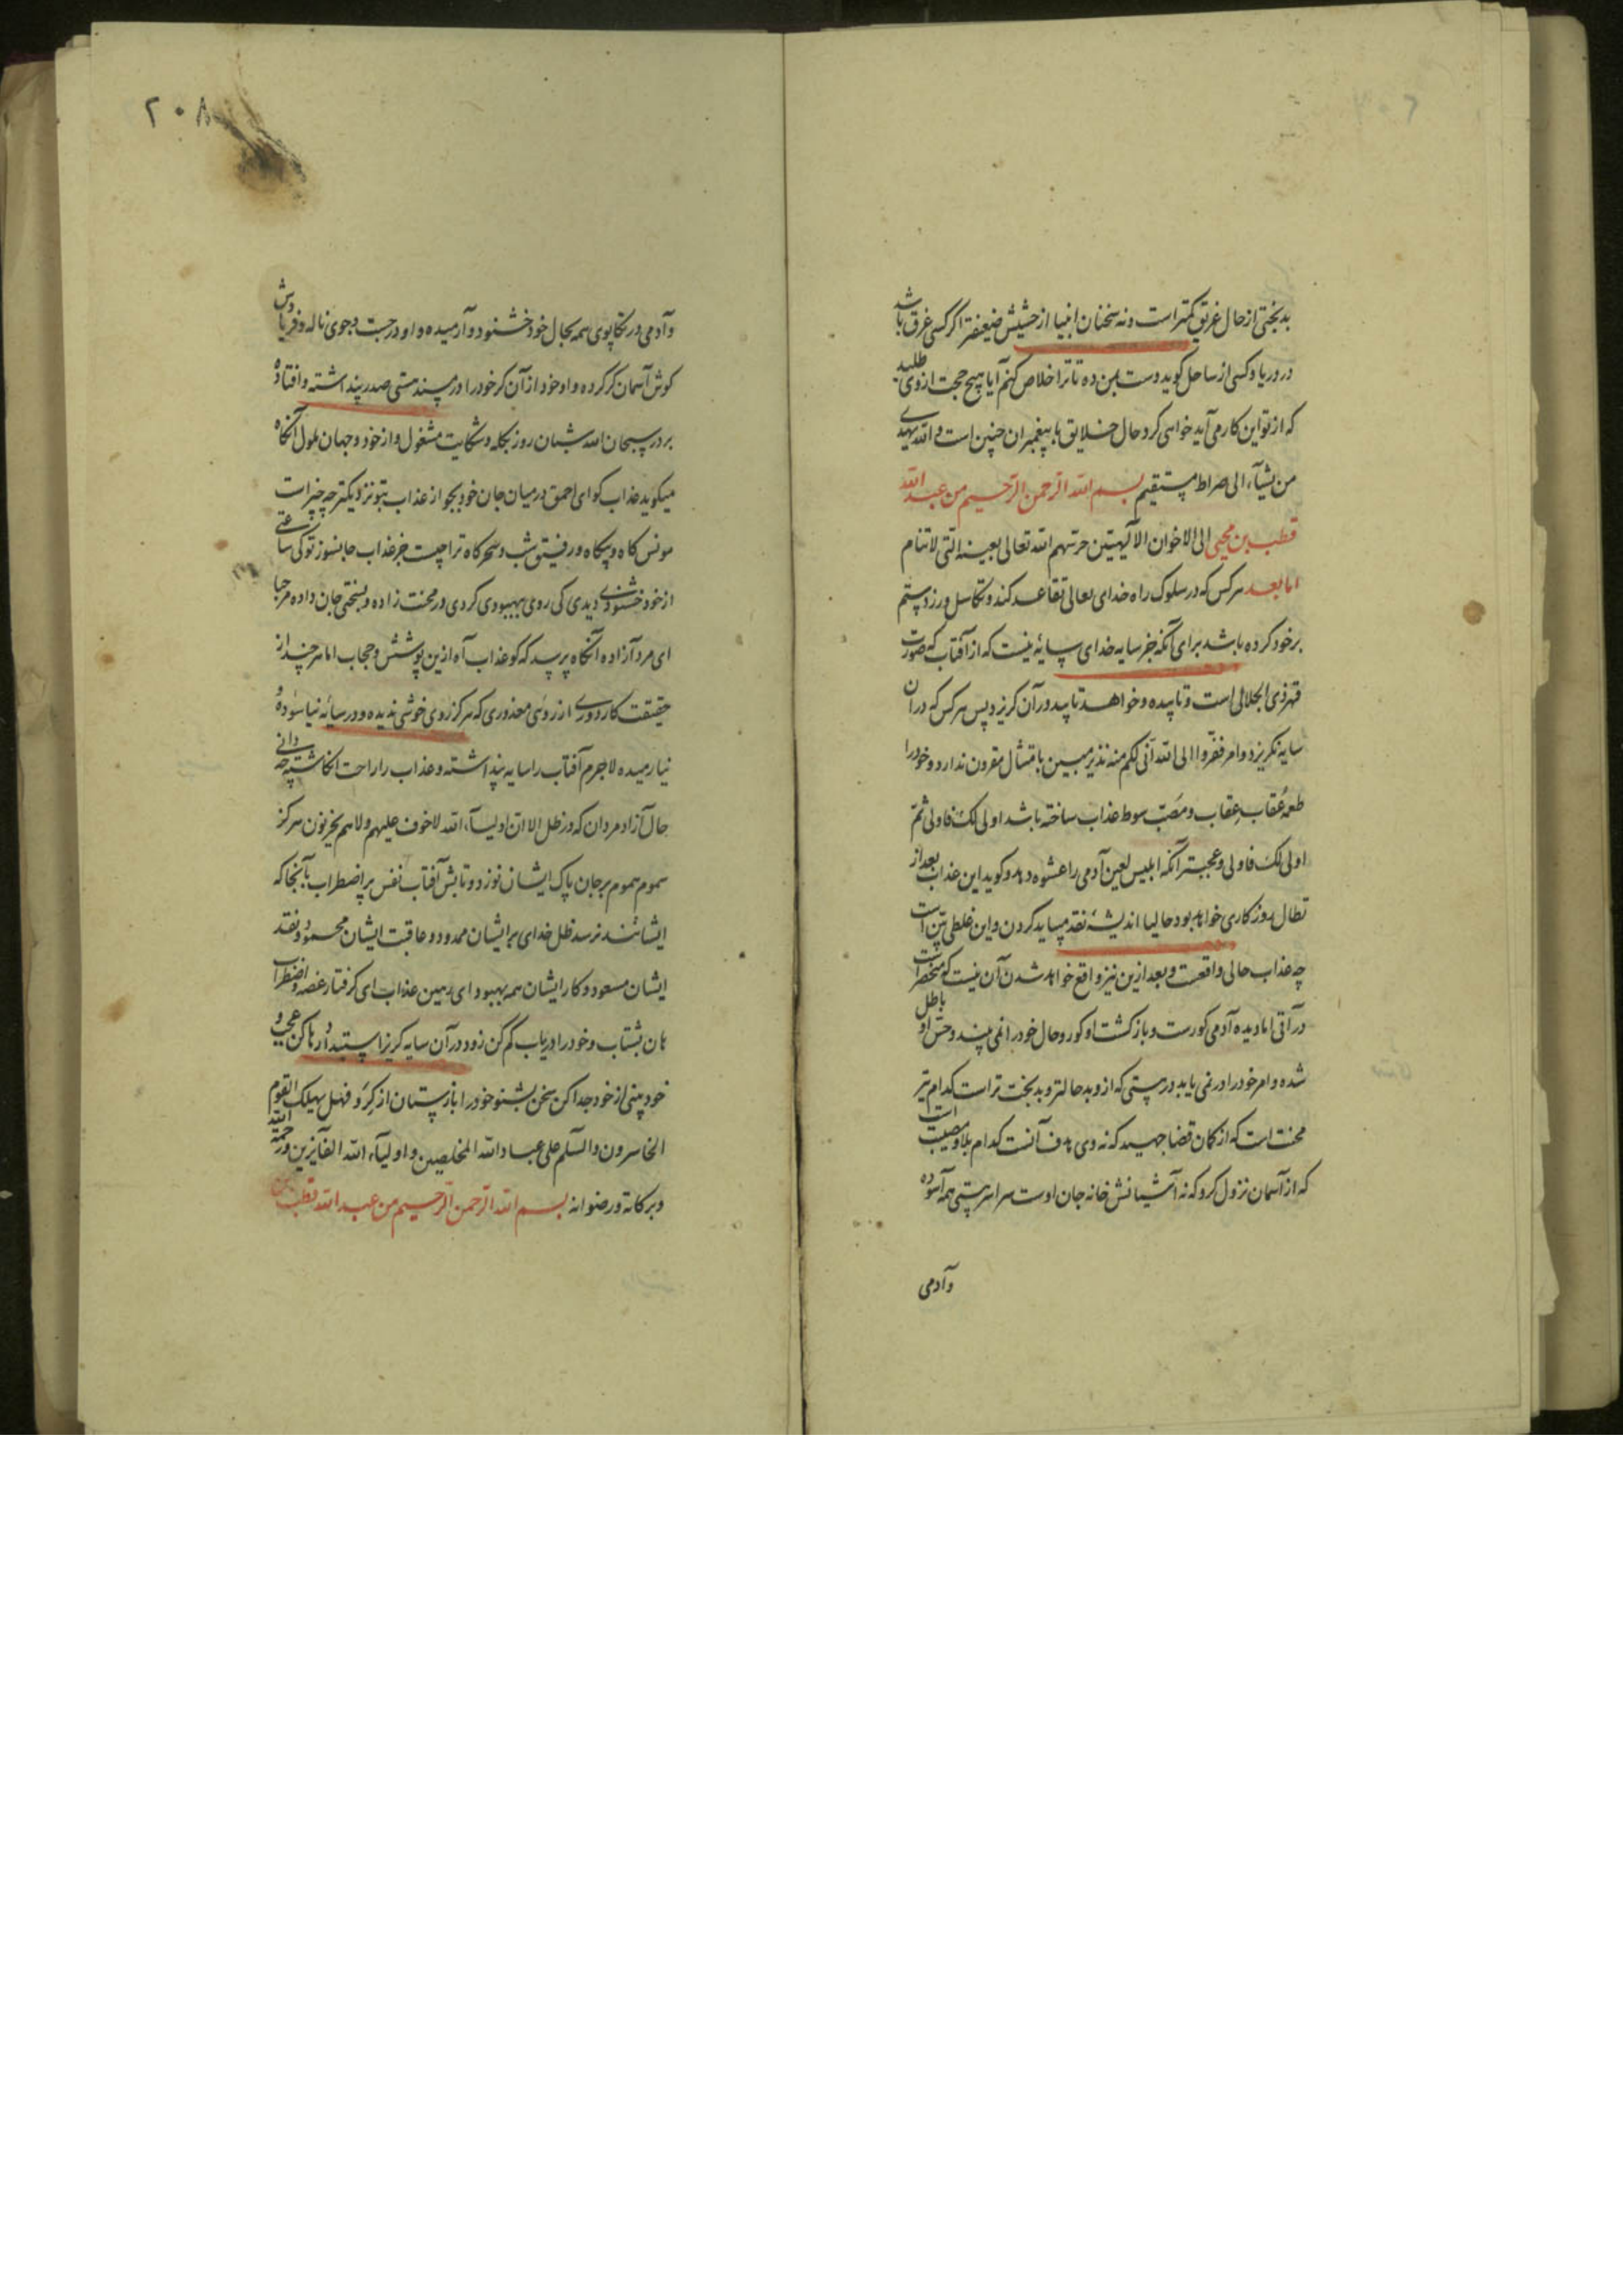 بدبختی از حال غریق کمتر است و نه سخنان انبیا از حشیش ضعیفتر اگر کسی غرق باشد
در دریا و کسی از ساحل گوید دست بمن ده تا ترا خلاص کنم آیا هیچ حجت از وی طلبد
که از تو این کار می آید خواهی کرد حال خلایق با پیغمبران چنین است والله یهدی
من یشآء الی صراط مستقیم بسم الله الرحمن الرحیم من عبد الله
قطب بن محیی الی الاخوان الالهیین حرسهم الله تعالی بعینه التی لا تنام
اما بعد هر کس که در سلوک راه خدای تعالی تقاعد کند و تکاسل ورزد ستم
بر خود کرده باشد برای آنکه جز سایه خدای سایه نیست که از آفتاب که صورت
قهر ذی الجلالی است و تابیده و خواهد تابید در آن گریزد پس هر کس که در آن
سایه نگریزد و امر ففروا الی الله انی لکم منه نذیر مبین بامتثال مقرون ندارد و خود را
طعمه عقاب عقاب و مصب سوط عذاب ساخته باشد اولی لک فاولی ثم
اولی لک فاولی و عجبتر آنکه ابلیس لعین آدمی را عشوه دهد و گوید این عذاب بعد از
تطال روزگاری خواهد بود حالیا اندیشه نقد میباید کردن و این غلطی بین است
چه عذاب حالی واقعست و بعد ازین نیز واقع خواهد شدن آن نیست که منحصر است
در آتی اما دیده آدمی کورست و بازگشت او کور و حال خود را نمی بیند و حس او باطل
شده و امر خود را در نمی یابد در هستی که ازو بد حالتر و بدبخت تر است کدام تیر
محنت است که از کمان قضا جهید که نه وی هدف آنست کدام بلا و مصیبت است
که از آسمان نزول کرد که نه آشیانش خانه جان اوست سراسر هستی همه آسوده
وآدمی
۲۰۸
و آدمی در تکاپوی همه بحال خود خشنود و آرمیده و او در جست و جوی ناله و فریادش
گوش آسمان کر کرده و او خود از آن کر خود را در مسند هستی صدر پنداشته و افتاده
بر در سبحان الله شبان روز بگله و شکایت مشغول و از خود و جهان ملول آنگاه
میگوید عذاب کو ای احمق در میان جان خود بجو از عذاب بتو نزدیکتر چه چیز است
مونس گاه و بیگاه و رفیق شب و سحرگاه تو چیست جز عذاب جانسوز تو کی ساعتی
از خود خشنودی دیدی کی روی ببهبودی کردی در محنت زاده و بسختی جان داده مرحبا
ای مرد آزاده آنگاه پرسد که کو عذاب آه ازین پوشش و حجاب اما هر چند از
حقیقت کار دوری از روئی معذوری که هرگز روی خوشی ندیده و در سایه نیاسوده و
نیارمیده لاجرم آفتاب را سایه پنداشته و عذاب را راحت انگاشته چه دانی
حال آزاد مردان که در ظل الا ان اولیآء الله لا خوف علیهم ولا هم یحزنون هرگز
سموم هموم بر جان پاک ایشان نوزد و تابش آفتاب نفس پر اضطراب بآنجا که
ایشانند نرسد ظل خدای بر ایشان ممدود و عاقبت ایشان محمود و نقد
ایشان مسعود و کار ایشان همه بهبود ای رهین عذاب ای گرفتار غصه و اضطراب
هان بشتاب و خود را دریاب گم کن زود در آن سایه گریز استبداد رها کن عجب و
خود بینی از خود جدا کن سخن بشنو خود را بازستان از گرو فهل یهلک القوم
الخاسرون والسلم علی عباد الله المخلصین و اولیآء الله الفآیزین ورحمة الله
وبرکاته ورضوانه بسم الله الرحمن الرحیم من عبد الله قطب بن